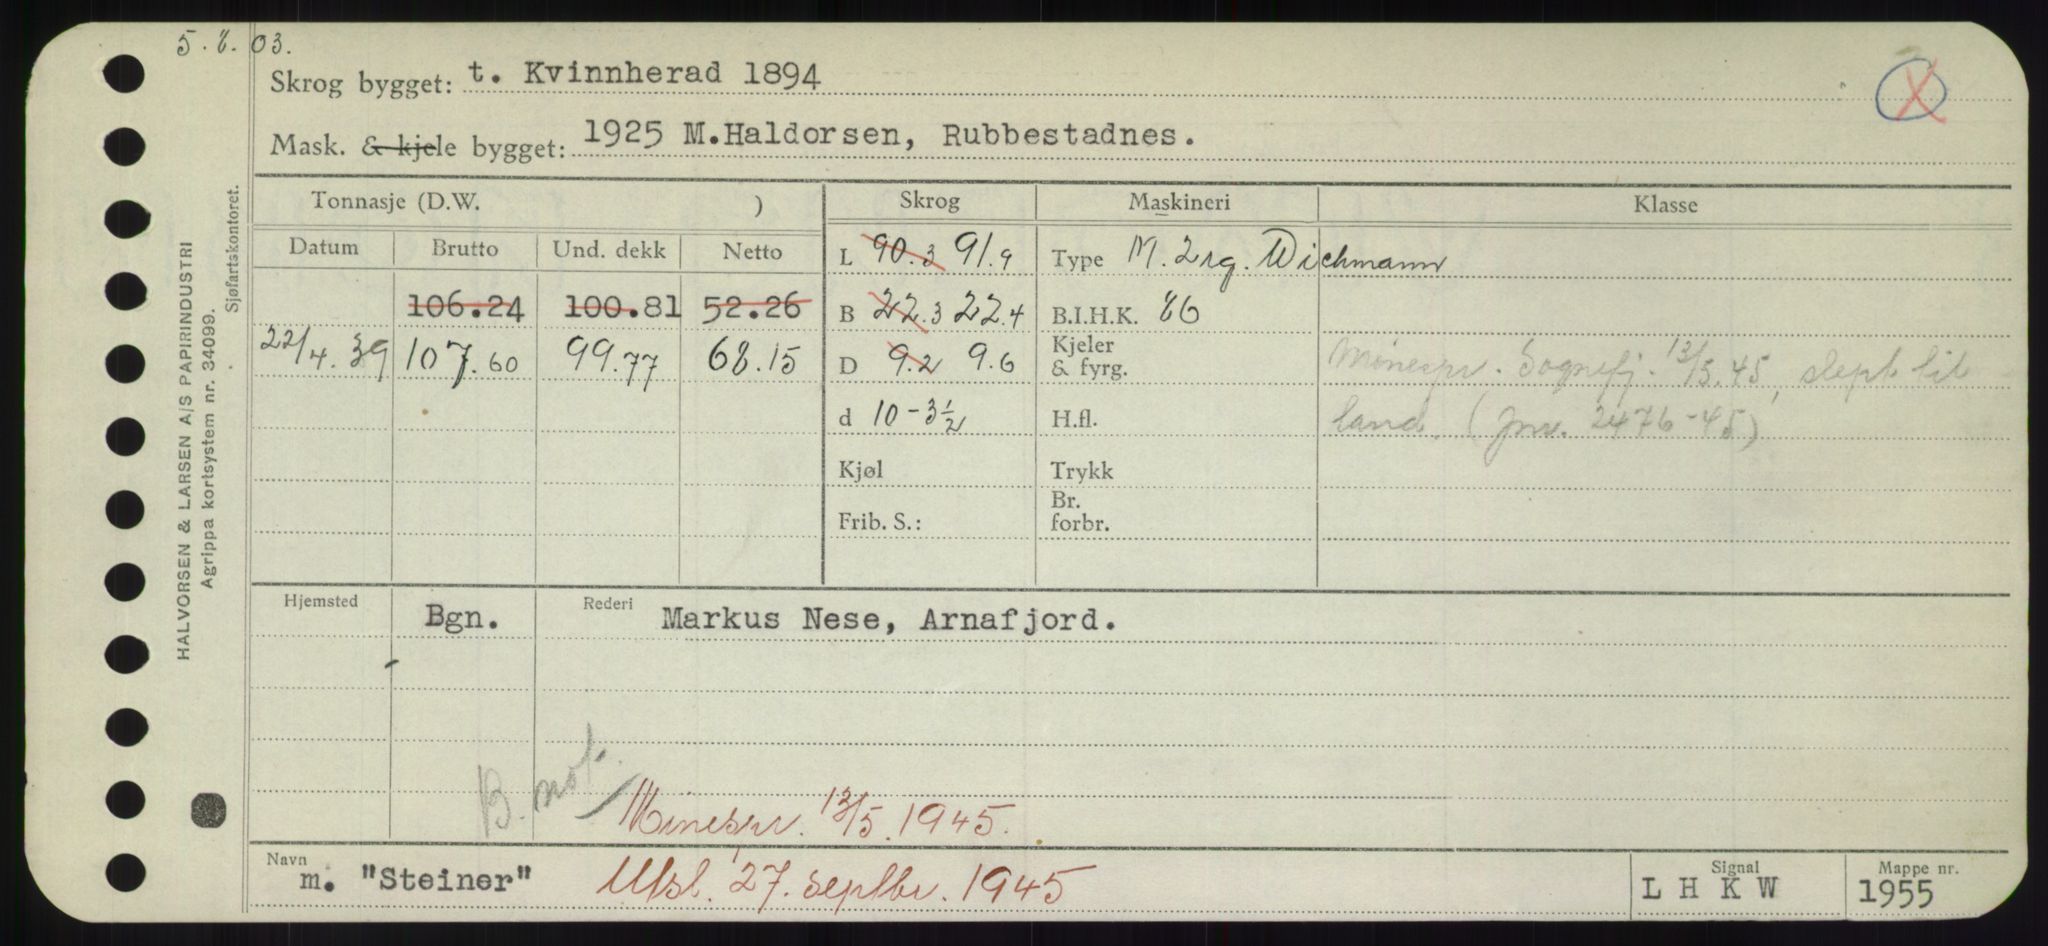 5.8.03.
Skrog bygget: t. Kvinnherad 1894
X
Mask. & kjele bygget: 1925 M.Haldorsen, Rubbestadnes.
Tonnasje (D.W. ) Skrog Maskineri Klasse
Datum Brutto Und. dekk Netto
L 90.3 91.9 Type M. 2 sg. Wichmann
106.24 100.81 52.26 B 22.3 22.4 B.I.H.K. 86
22/4.39 107.60 99.77 68.15 D 9.2 9.6 Kjeler & fyrg. Minespr. Sognefj. 13/5.45, slept til
d 10-3½ H.fl. land. (Jnr. 2476-45)
Kjøl Trykk
Frib. S.: Br. forbr.
Hjemsted Bgn. Rederi Markus Nese, Arnafjord.
B. not.
Minespr. 13/5.1945.
Navn m. "Steiner" Utsl. 27. septbr. 1945 Signal L H K W Mappe nr. 1955
HALVORSEN & LARSEN A/S PAPIRINDUSTRI
Agrippa kortsystem nr. 34099.
Sjøfartskontoret.